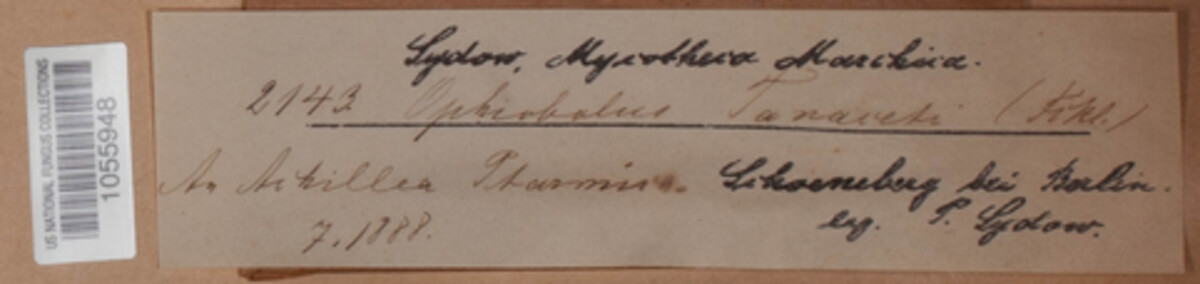 US NATIONAL FUNGUS COLLECTIONS
1055948
Sydow, Mycotheca Marchica.
2143 Ophiobolus Tanaceti (Fckl.)
An Achillea Ptarmica. Schoeneberg bei Berlin.
7. 1888. leg. P. Sydow.